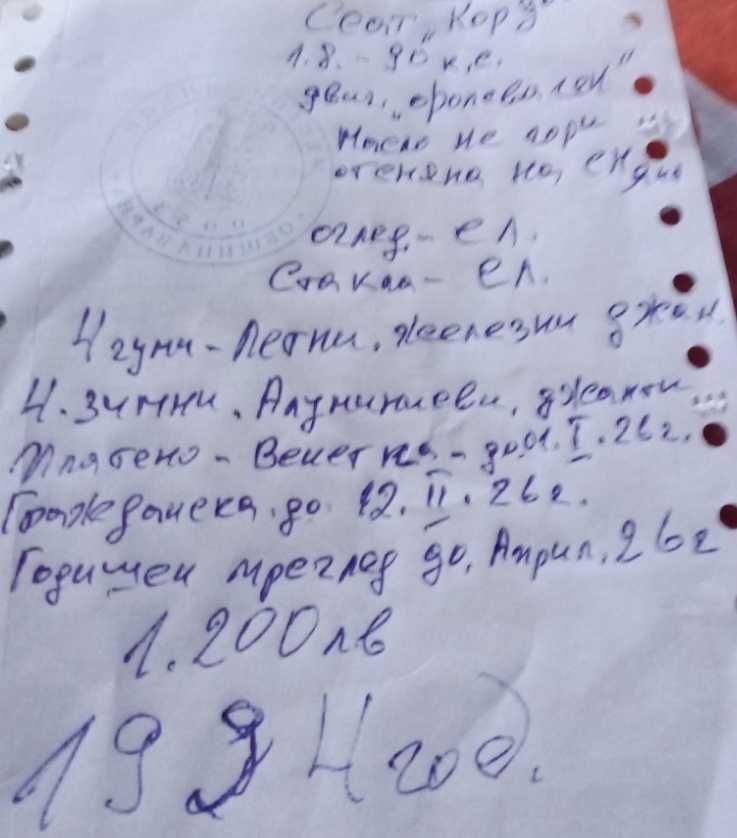 Сеат „Корд
1.8. - 90 к.с.
двиг.
Масло не гори
оглед. - ел.
Стъкла - ел.
4 гуми - Летни. железни джан.
4. зимни. Алуминиеви. джанти
Платено - Венетка - до 01. I. 26 г.
Гражданска. до. 12. II. 26 г.
Годишен преглед до, Април. 26 г
1.200 лв
1994 год.